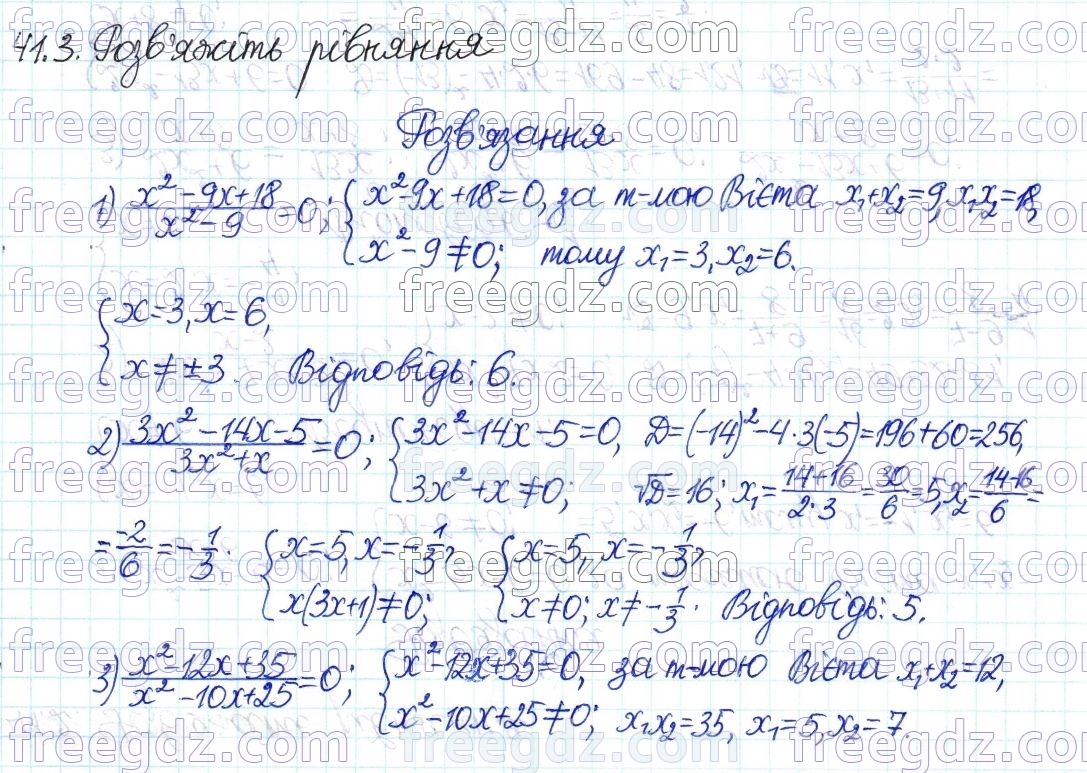 41.3. Розв'яжіть рівняння
Розв'язання
1) (x² - 9x + 18)/(x² - 9) = 0; { x² - 9x + 18 = 0, за т-мою Вієта x₁ + x₂ = 9, x₁x₂ = 18,
x² - 9 ≠ 0; тому x₁ = 3, x₂ = 6.
{ x = 3, x = 6,
x ≠ ±3. Відповідь: 6.
2) (3x² - 14x - 5)/(3x² + x) = 0; { 3x² - 14x - 5 = 0, D = (-14)² - 4·3(-5) = 196 + 60 = 256,
3x² + x ≠ 0; √D = 16; x₁ = (14+16)/(2·3) = 30/6 = 5, x₂ = (14-16)/6 =
= -2/6 = -1/3. { x = 5, x = -1/3, { x = 5, x = -1/3,
x(3x+1) ≠ 0; x ≠ 0; x ≠ -1/3. Відповідь: 5.
3) (x² - 12x + 35)/(x² - 10x + 25) = 0; { x² - 12x + 35 = 0, за т-мою Вієта x₁ + x₂ = 12,
x² - 10x + 25 ≠ 0; x₁x₂ = 35, x₁ = 5, x₂ = 7.
freegdz.com